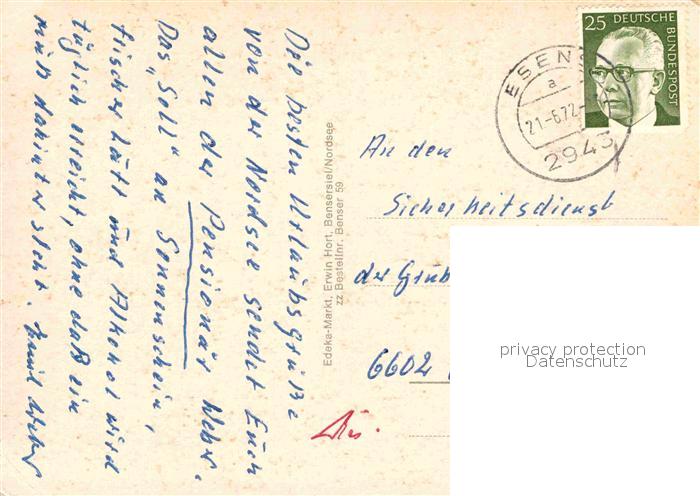 Die besten Urlaubsgrüße
von der Nordsee sendet Euch
allen der Pensionär Weber.
Das "Soll" an Sonnenschein,
frischer Luft und Alkohol wird
täglich erreicht, ohne daß ein
muß dahinter steht.
Edeka-Markt, Erwin Hort, Bensersiel/Nordsee
zz Bestellnr. Benser 59
25 DEUTSCHE
BUNDESPOST
ESENS
a
21.-6.72
2943
An den
Sicherheitsdienst
der Grub
6602
privacy protection
Datenschutz